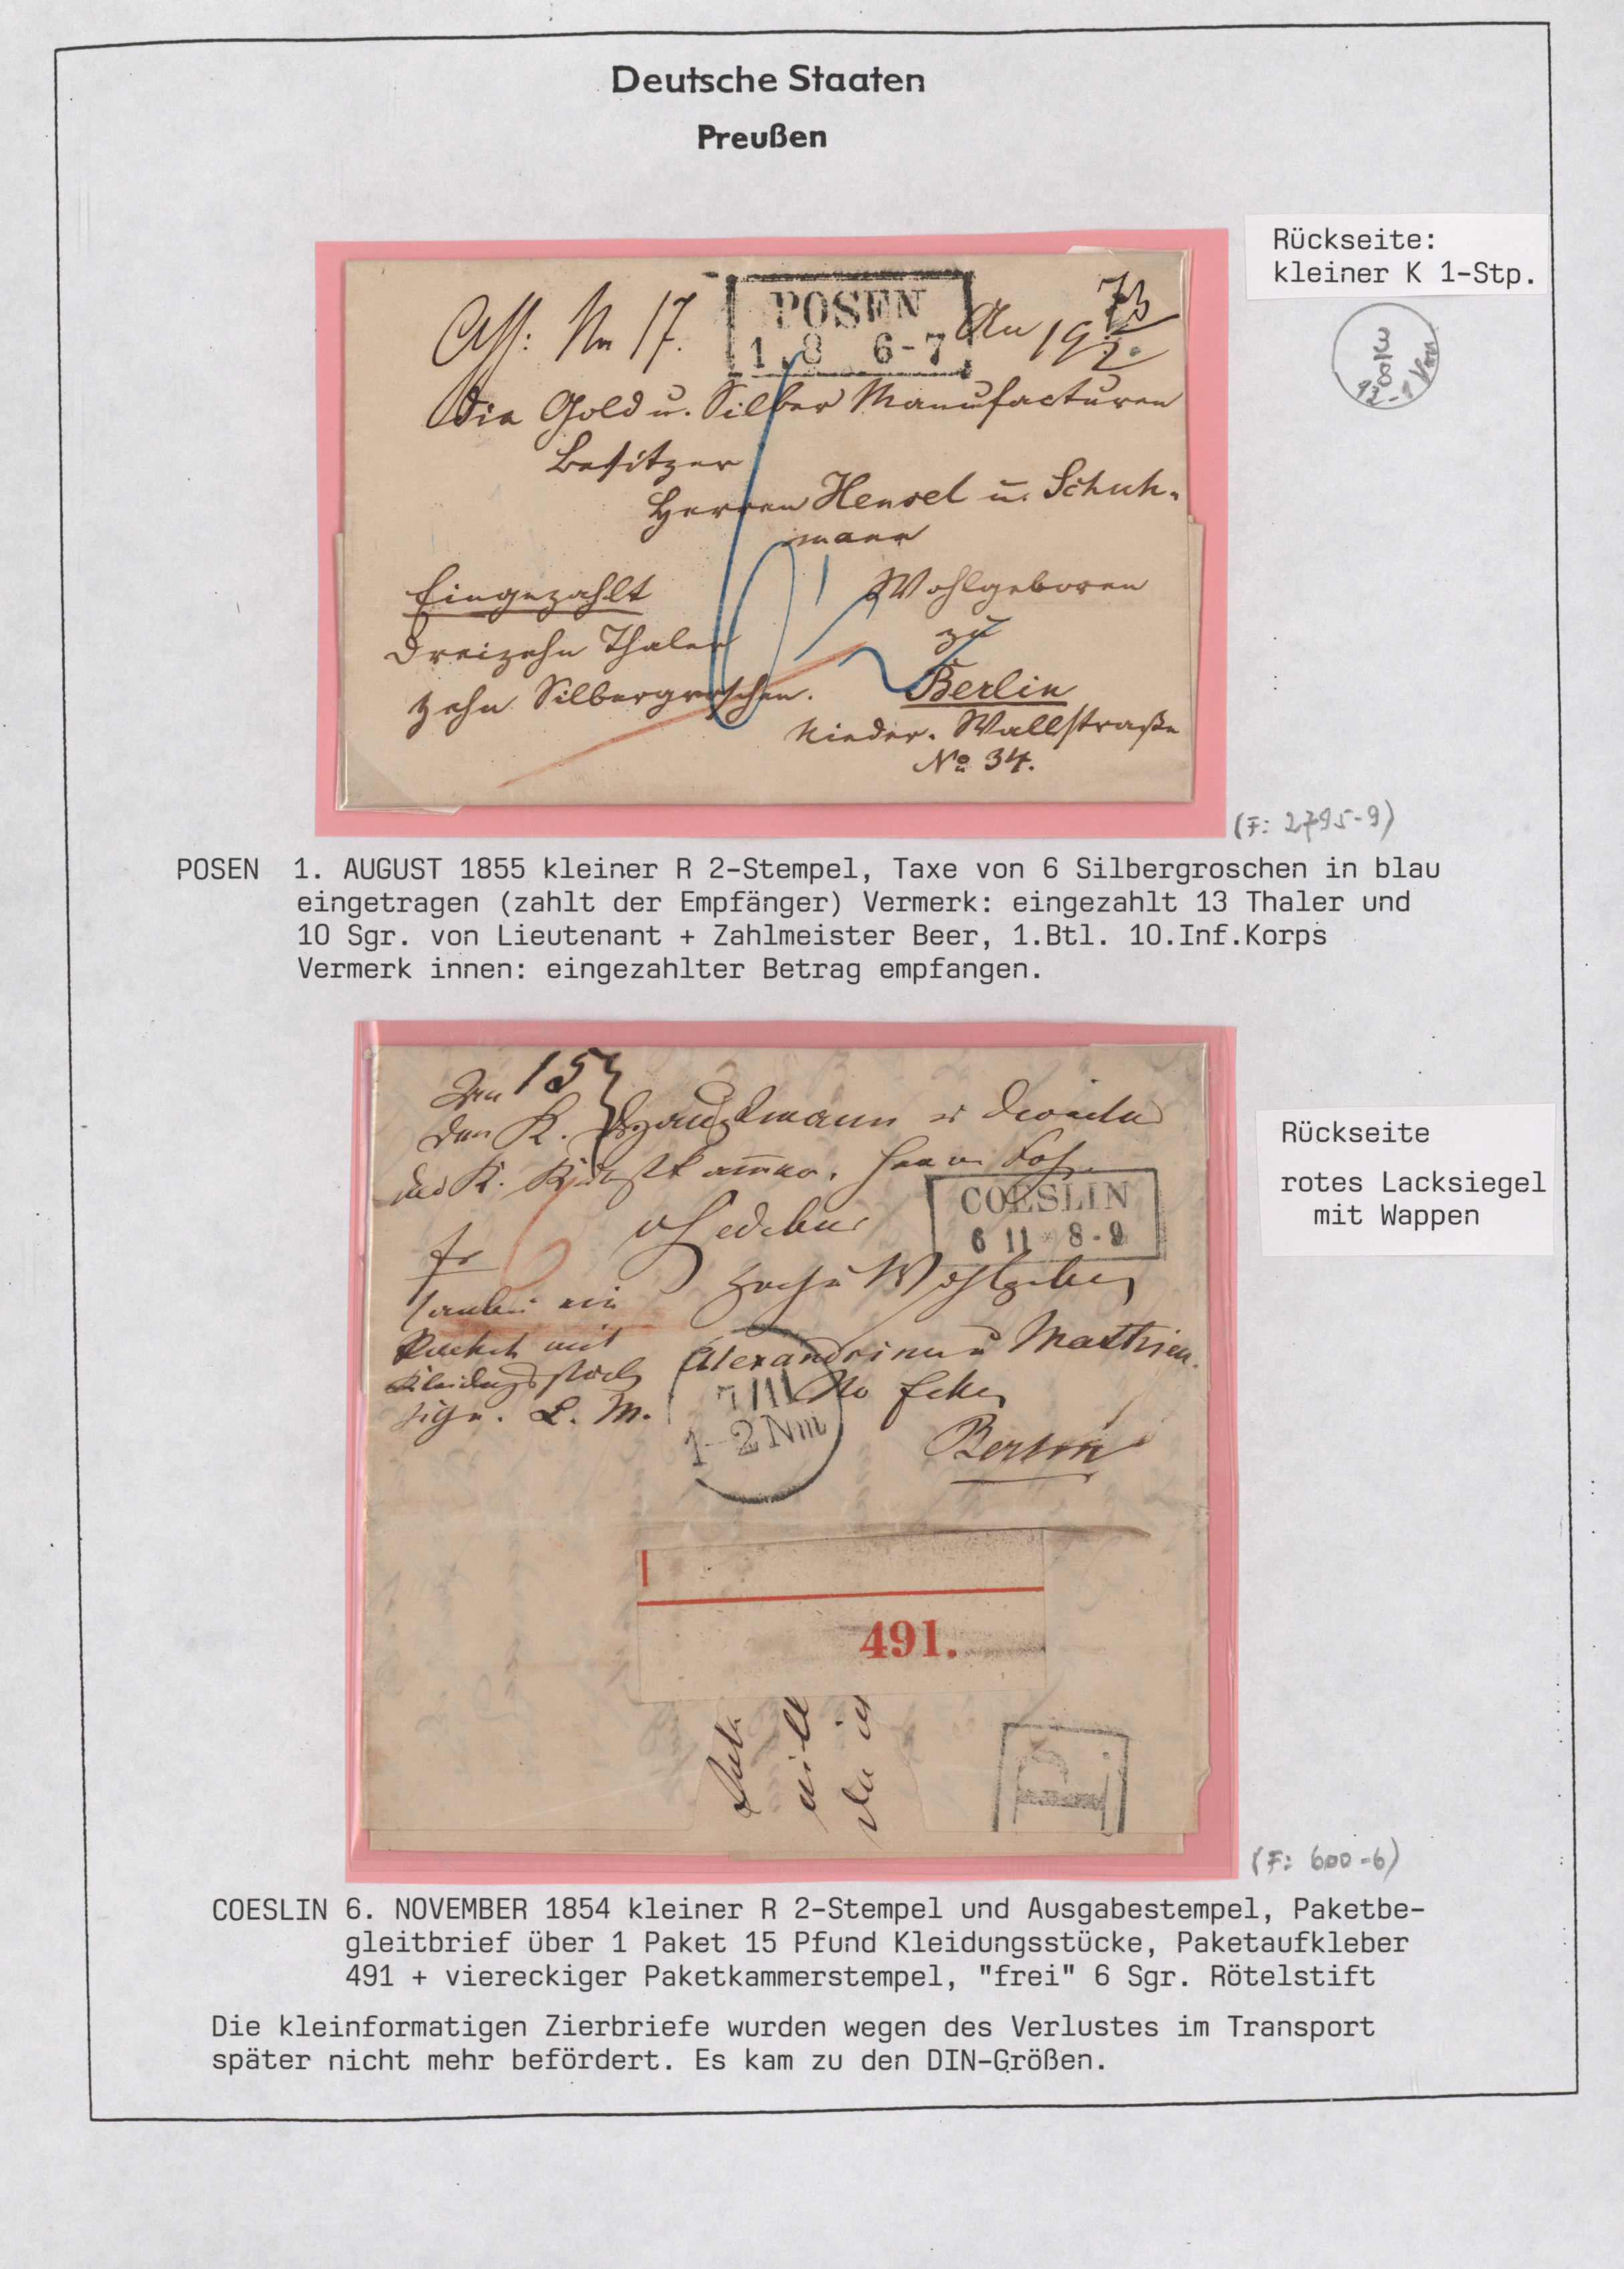 Deutsche Staaten
Preußen
Rückseite:
kleiner K 1-Stp.
Ass: No 17.
POSEN
1 8 6-7
An
die Gold u. Silber Manufacturen
Besitzer
Herren Hensel u. Schuh-
mann
Wohlgeboren
zu
Berlin
Nieder. Wallstraße
No 34.
Eingezahlt
Dreizehn Thaler
zehn Silbergroschen.
(F: 2795-9)
POSEN 1. AUGUST 1855 kleiner R 2-Stempel, Taxe von 6 Silbergroschen in blau
eingetragen (zahlt der Empfänger) Vermerk: eingezahlt 13 Thaler und
10 Sgr. von Lieutenant + Zahlmeister Beer, 1.Btl. 10.Inf.Korps
Vermerk innen: eingezahlter Betrag empfangen.
15
K. Hauptmann
COESLIN
6 11 * 8-9
Rückseite
rotes Lacksiegel
mit Wappen
fr
Packet mit
sign. L. M.
7 11
1-2 Nm
Berlin
491.
P
(F: 600-6)
COESLIN 6. NOVEMBER 1854 kleiner R 2-Stempel und Ausgabestempel, Paketbe-
gleitbrief über 1 Paket 15 Pfund Kleidungsstücke, Paketaufkleber
491 + viereckiger Paketkammerstempel, "frei" 6 Sgr. Rötelstift
Die kleinformatigen Zierbriefe wurden wegen des Verlustes im Transport
später nicht mehr befördert. Es kam zu den DIN-Größen.